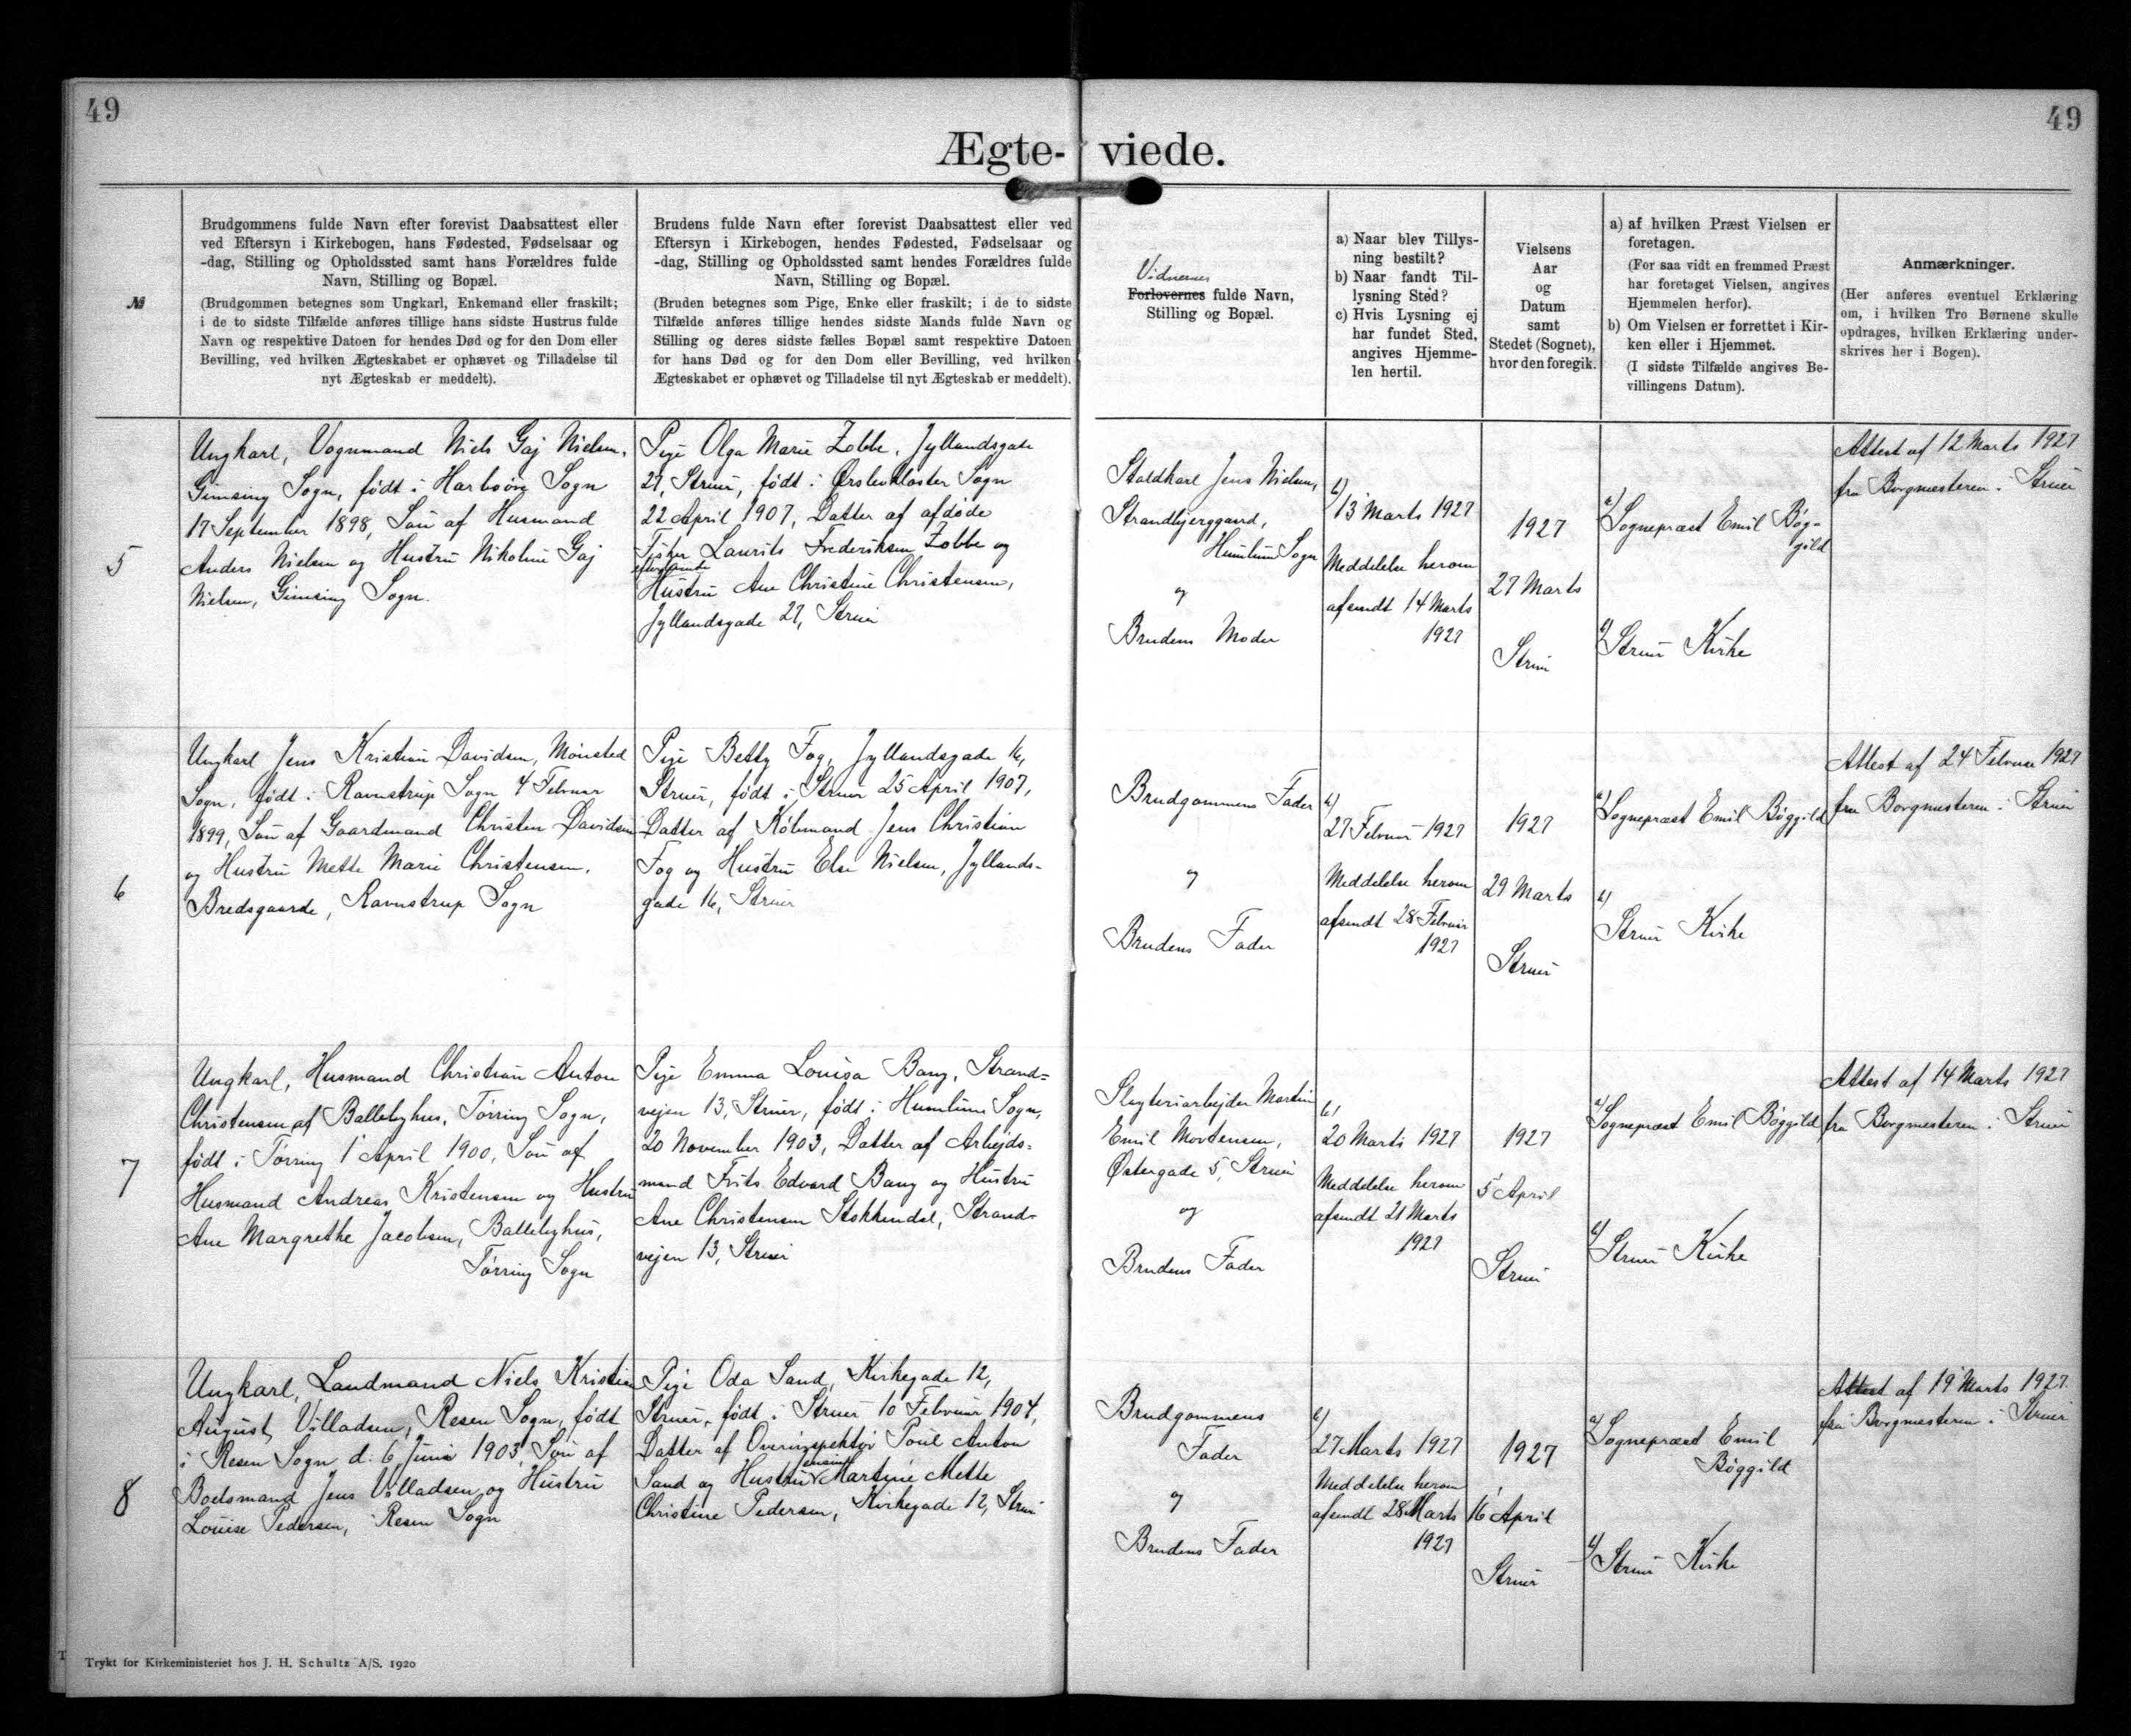 49
49
Ægte- viede.
№
Brudgommens fulde Navn efter forevist Daabsattest eller
ved Eftersyn i Kirkebogen, hans Fødested, Fødselsaar og
-dag, Stilling og Opholdssted samt hans Forældres fulde
Navn, Stilling og Bopæl.
(Brudgommen betegnes som Ungkarl, Enkemand eller fraskilt;
i de to sidste Tilfælde anføres tillige hans sidste Hustrus fulde
Navn og respektive Datoen for hendes Død og for den Dom eller
Bevilling, ved hvilken Ægteskabet er ophævet og Tilladelse til
nyt Ægteskab er meddelt).
Brudens fulde Navn efter forevist Daabsattest eller ved
Eftersyn i Kirkebogen, hendes Fødested, Fødselsaar og
-dag, Stilling og Opholdssted samt hendes Forældres fulde
Navn, Stilling og Bopæl.
(Bruden betegnes som Pige, Enke eller fraskilt; i de to sidste
Tilfælde anføres tillige hendes sidste Mands fulde Navn og
Stilling og deres sidste fælles Bopæl samt respektive Datoen
for hans Død og for den Dom eller Bevilling, ved hvilken
Ægteskabet er ophævet og Tilladelse til nyt Ægteskab er meddelt).
Vidnernes
Forlovernes fulde Navn,
Stilling og Bopæl.
a) Naar blev Tillys-
ning bestilt?
b) Naar fandt Til-
lysning Sted?
c) Hvis Lysning ej
har fundet Sted,
angives Hjemme-
len hertil.
Vielsens
Aar
og
Datum
samt
Stedet (Sognet),
hvor den foregik.
a) af hvilken Præst Vielsen er
foretagen.
(For saa vidt en fremmed Præst
har foretaget Vielsen, angives
Hjemmelen herfor).
b) Om Vielsen er forrettet i Kir-
ken eller i Hjemmet.
(I sidste Tilfælde angives Be-
villingens Datum).
Anmærkninger.
(Her anføres eventuel Erklæring
om, i hvilken Tro Børnene skulle
opdrages, hvilken Erklæring under-
skrives her i Bogen).
5
Ungkarl, Vognmand Niels Gaj Nielsen,
Gimsing Sogn, født i Harboøre Sogn
17 September 1898, Søn af Husmand
Anders Nielsen og Hustru Nikoline Gaj
Nielsen, Gimsing Sogn.
Pige Olga Marie Zobbe, Jyllandsgade
27, Struer, født i Ørslevkloster Sogn
22 April 1907, Datter af afdøde
Fisker Laurits Frederiksen Zobbe og
efterlevende
Hustru Ane Christine Christensen,
Jyllandsgade 27, Struer
Staldkarl Jens Nielsen,
Strandbjerggaard,
Humlum Sogn
og
Brudens Moder
b)
13 Marts 1927
Meddelelse herom
afsendt 14 Marts
1927
1927
27 Marts
Struer
a) Sognepræst Emil Bøg-
gild
b) Struer Kirke
Attest af 12 Marts 1927
fra Borgmesteren i Struer
6
Ungkarl Jens Kristian Davidsen, Mønsted
Sogn, født i Ravnstrup Sogn 4 Februar
1899, Søn af Gaardmand Christen Davidsen
og Hustru Mette Marie Christensen,
Bredsgaarde, Ravnstrup Sogn
Pige Betty Fog, Jyllandsgade 16,
Struer, født i Struer 25 April 1907,
Datter af Købmand Jens Christian
Fog og Hustru Else Nielsen, Jyllands-
gade 16, Struer
Brudgommens Fader
og
Brudens Fader
b)
27 Februar 1927
Meddelelse herom
afsendt 28 Februar
1927
1927
29 Marts
Struer
a) Sognepræst Emil Bøggild
b)
Struer Kirke
Attest af 24 Februar 1927
fra Borgmesteren i Struer
7
Ungkarl, Husmand Christian Anton
Christensen af Ballebyhus, Tørring Sogn,
født i Tørring 1 April 1900, Søn af
Husmand Andreas Kristensen og Hustru
Ane Margrethe Jacobsen, Ballebyhus,
Tørring Sogn
Pige Emma Louisa Bang, Strand=
vejen 13, Struer, født i Humlum Sogn,
20 November 1903, Datter af Arbejds=
mand Frits Edvard Bang og Hustru
Ane Christensen Stokkendal, Strand=
vejen 13, Struer
Slagteriarbejder Martin
Emil Mortensen,
Østergade 5, Struer
og
Brudens Fader
b)
20 Marts 1927
Meddelelse herom
afsendt 21 Marts
1927
1927
5 April
Struer
a) Sognepræst Emil Bøggild
b) Struer Kirke
Attest af 14 Marts 1927
fra Borgmesteren i Struer
8
Ungkarl, Landmand Niels Kristian
August Villadsen, Resen Sogn, født
i Resen Sogn d. 6 Juni 1903, Søn af
Boelsmand Jens Villadsen og Hustru
Louise Pedersen, Resen Sogn
Pige Oda Sand, Kirkegade 12,
Struer, født i Struer 10 Februar 1904,
Datter af Overinspektør Poul Anton
Sand og Hustru Martine Mette
Christine Pedersen, Kirkegade 12, Struer
Brudgommens
Fader
og
Brudens Fader
b)
27 Marts 1927
Meddelelse herom
afsendt 28 Marts
1927
1927
16 April
Struer
a) Sognepræst Emil
Bøggild
b) Struer Kirke
Attest af 19 Marts 1927.
fra Borgmesteren i Struer
Trykt for Kirkeministeriet hos J. H. Schultz A/S. 1920